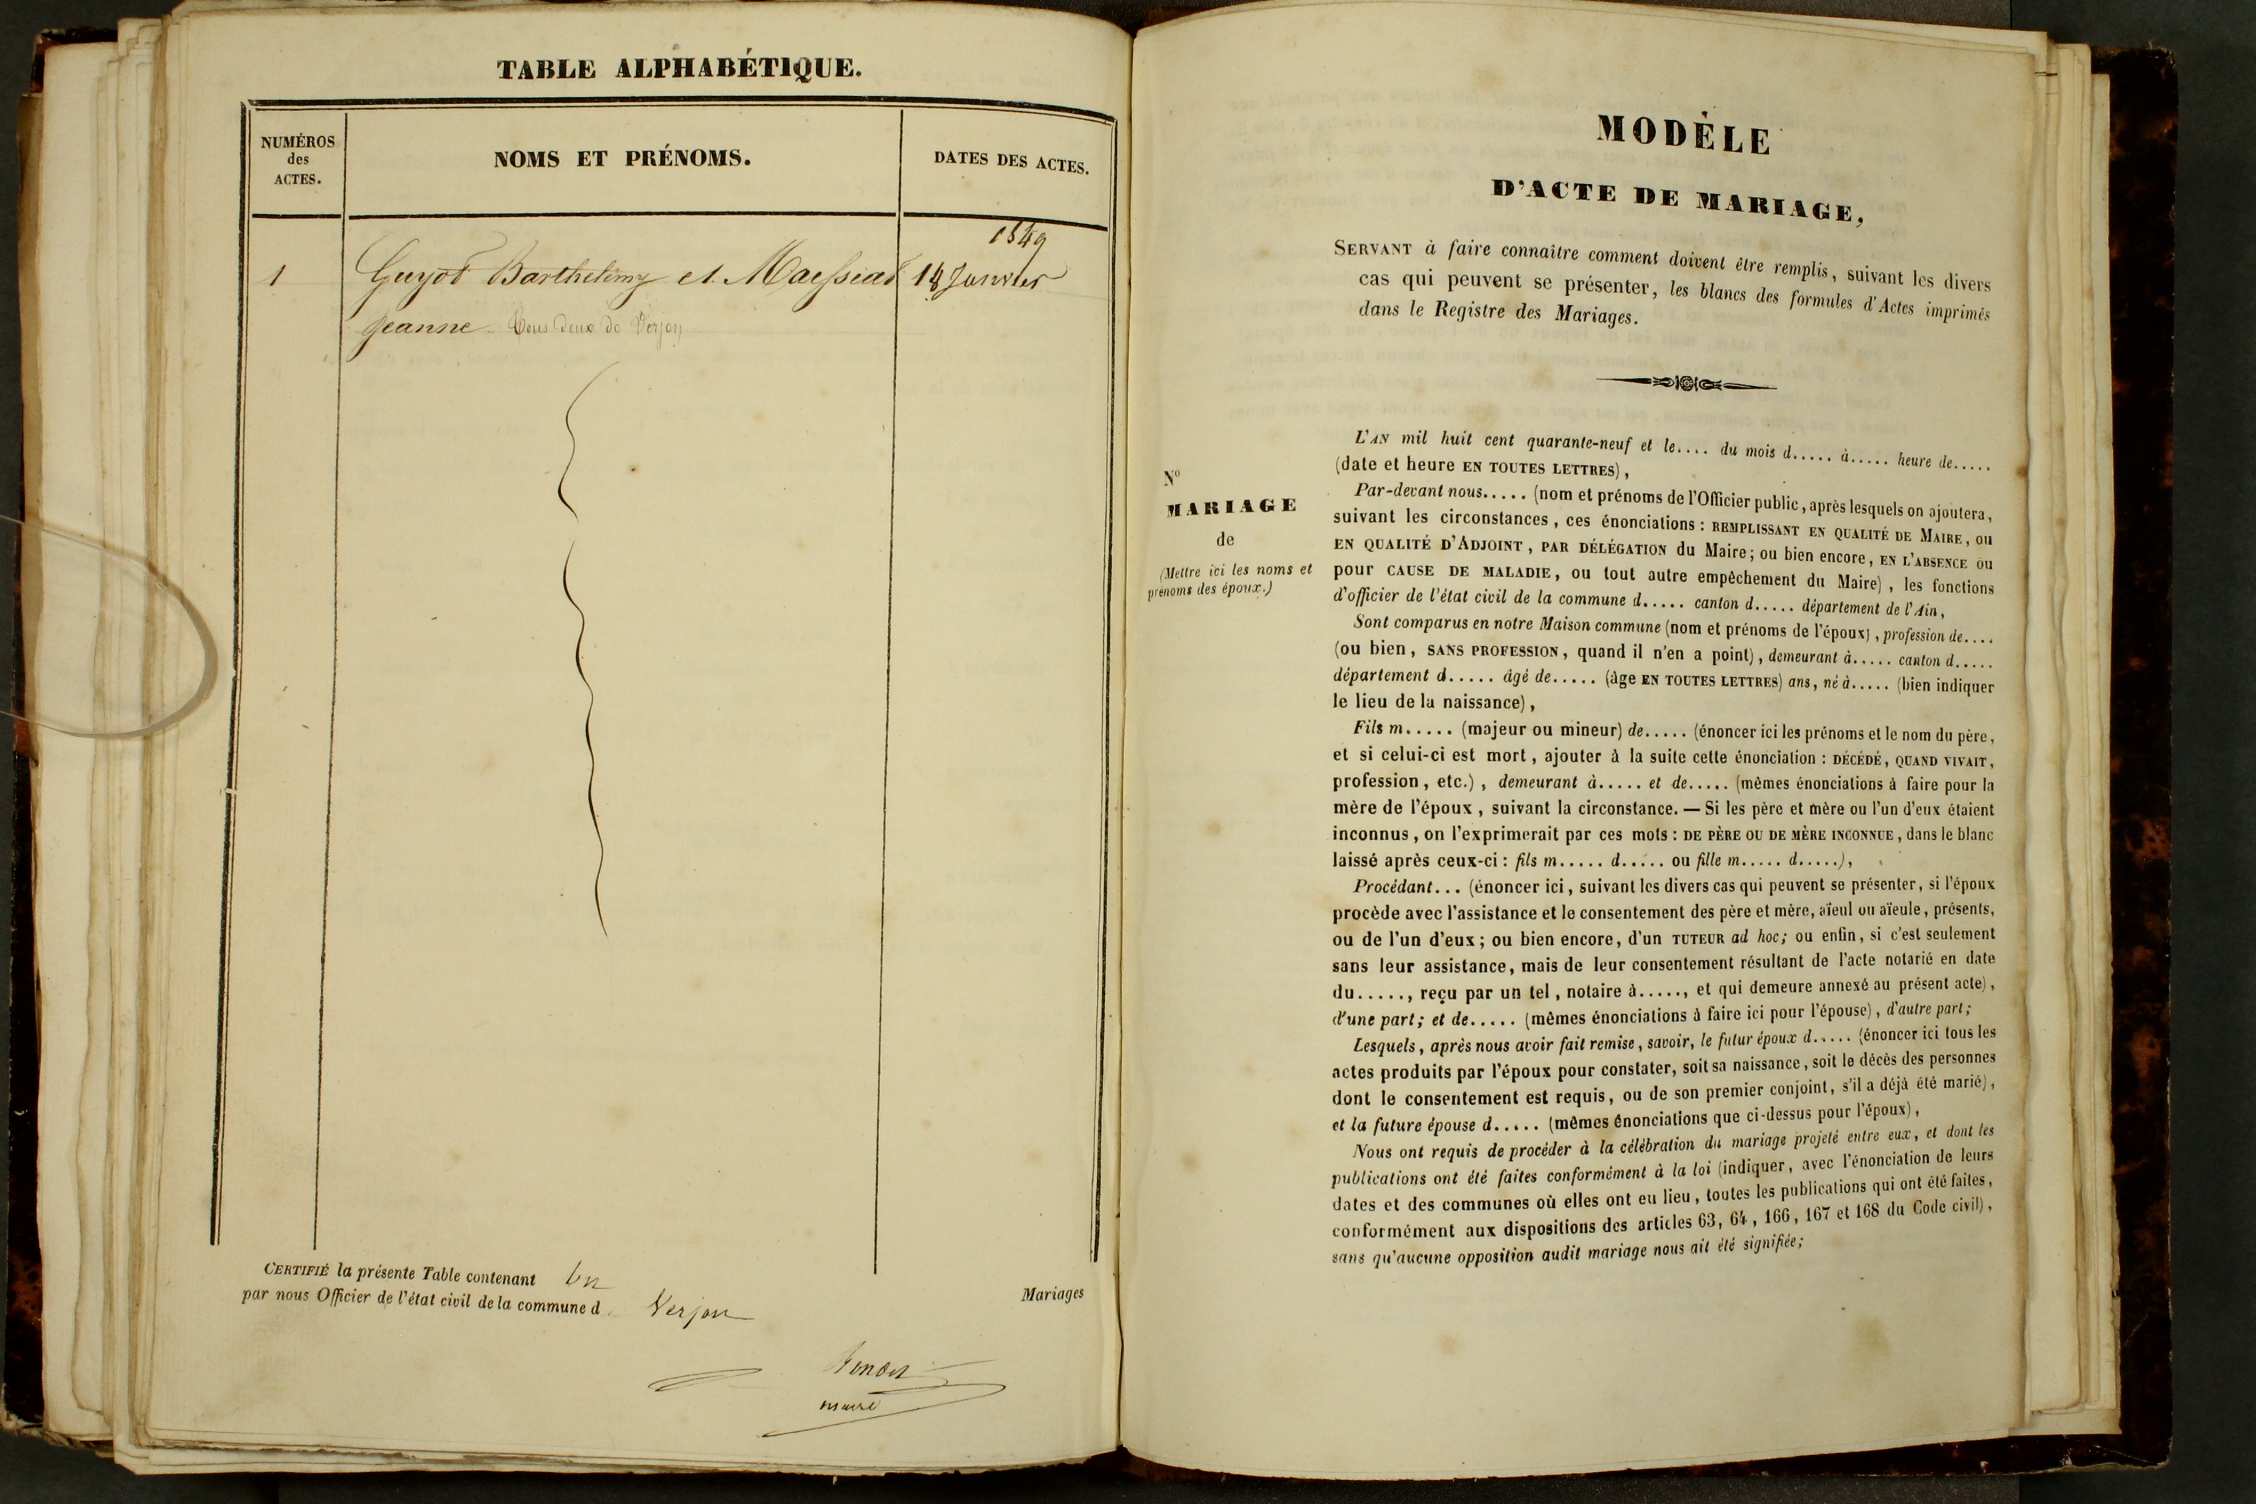 TABLE ALPHABÉTIQUE.
NUMÉROS
des
ACTES.
NOMS ET PRÉNOMS.
DATES DES ACTES.
1849
1 Guyot Barthelemy et Maissiat 18 Janvier
Jeanne Tous deux de Verjon
CERTIFIÉ la présente Table contenant un Mariages
par nous Officier de l'état civil de la commune d Verjon
maire
MODÈLE
D'ACTE DE MARIAGE,
SERVANT à faire connaître comment doivent être remplis, suivant les divers
cas qui peuvent se présenter, les blancs des formules d'Actes imprimés
dans le Registre des Mariages.
N°
MARIAGE
de
(Mettre ici les noms et
prénoms des époux.)
L'AN mil huit cent quarante-neuf et le.... du mois d..... à..... heure de.....
(date et heure EN TOUTES LETTRES),
Par-devant nous..... (nom et prénoms de l'Officier public, après lesquels on ajoutera,
suivant les circonstances, ces énonciations : REMPLISSANT EN QUALITÉ DE MAIRE, OU
EN QUALITÉ D'ADJOINT, PAR DÉLÉGATION du Maire; ou bien encore, EN L'ABSENCE OU
pour CAUSE DE MALADIE, ou tout autre empêchement du Maire), les fonctions
d'officier de l'état civil de la commune d..... canton d..... département de l'Ain,
Sont comparus en notre Maison commune (nom et prénoms de l'époux), profession de....
(ou bien, SANS PROFESSION, quand il n'en a point), demeurant à..... canton d.....
département d..... âgé de..... (âge EN TOUTES LETTRES) ans, né à..... (bien indiquer
le lieu de la naissance),
Fils m..... (majeur ou mineur) de..... (énoncer ici les prénoms et le nom du père,
et si celui-ci est mort, ajouter à la suite cette énonciation : DÉCÉDÉ, QUAND VIVAIT,
profession, etc.), demeurant à..... et de..... (mêmes énonciations à faire pour la
mère de l'époux, suivant la circonstance. — Si les père et mère ou l'un d'eux étaient
inconnus, on l'exprimerait par ces mots : DE PÈRE OU DE MÈRE INCONNUE, dans le blanc
laissé après ceux-ci : fils m..... d..... ou fille m..... d.....),
Procédant... (énoncer ici, suivant les divers cas qui peuvent se présenter, si l'époux
procède avec l'assistance et le consentement des père et mère, aïeul ou aïeule, présents,
ou de l'un d'eux; ou bien encore, d'un TUTEUR ad hoc; ou enfin, si c'est seulement
sans leur assistance, mais de leur consentement résultant de l'acte notarié en date
du....., reçu par un tel, notaire à....., et qui demeure annexé au présent acte),
d'une part; et de..... (mêmes énonciations à faire ici pour l'épouse), d'autre part;
Lesquels, après nous avoir fait remise, savoir, le futur époux d..... (énoncer ici tous les
actes produits par l'époux pour constater, soit sa naissance, soit le décès des personnes
dont le consentement est requis, ou de son premier conjoint, s'il a déjà été marié),
et la future épouse d..... (mêmes énonciations que ci-dessus pour l'époux),
Nous ont requis de procéder à la célébration du mariage projeté entre eux, et dont les
publications ont été faites conformément à la loi (indiquer, avec l'énonciation de leurs
dates et des communes où elles ont eu lieu, toutes les publications qui ont été faites,
conformément aux dispositions des articles 63, 64, 166, 167 et 168 du Code civil),
sans qu'aucune opposition audit mariage nous ait été signifiée;